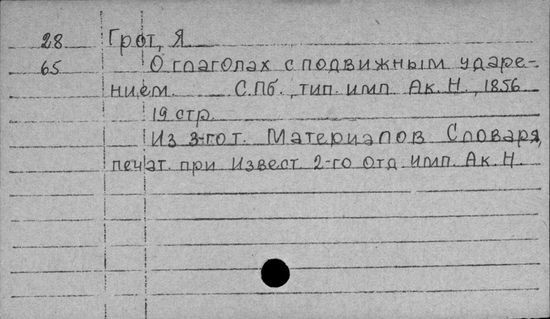 28 Грот, Я
65 О глаголах с подвижным ударе-
нием. С.Пб., тип. имп. Ак. Н., 1856
19 стр.
Из 3-го т. Материалов Словаря,
печат. при Извест. 2-го отд. имп. Ак. Н.